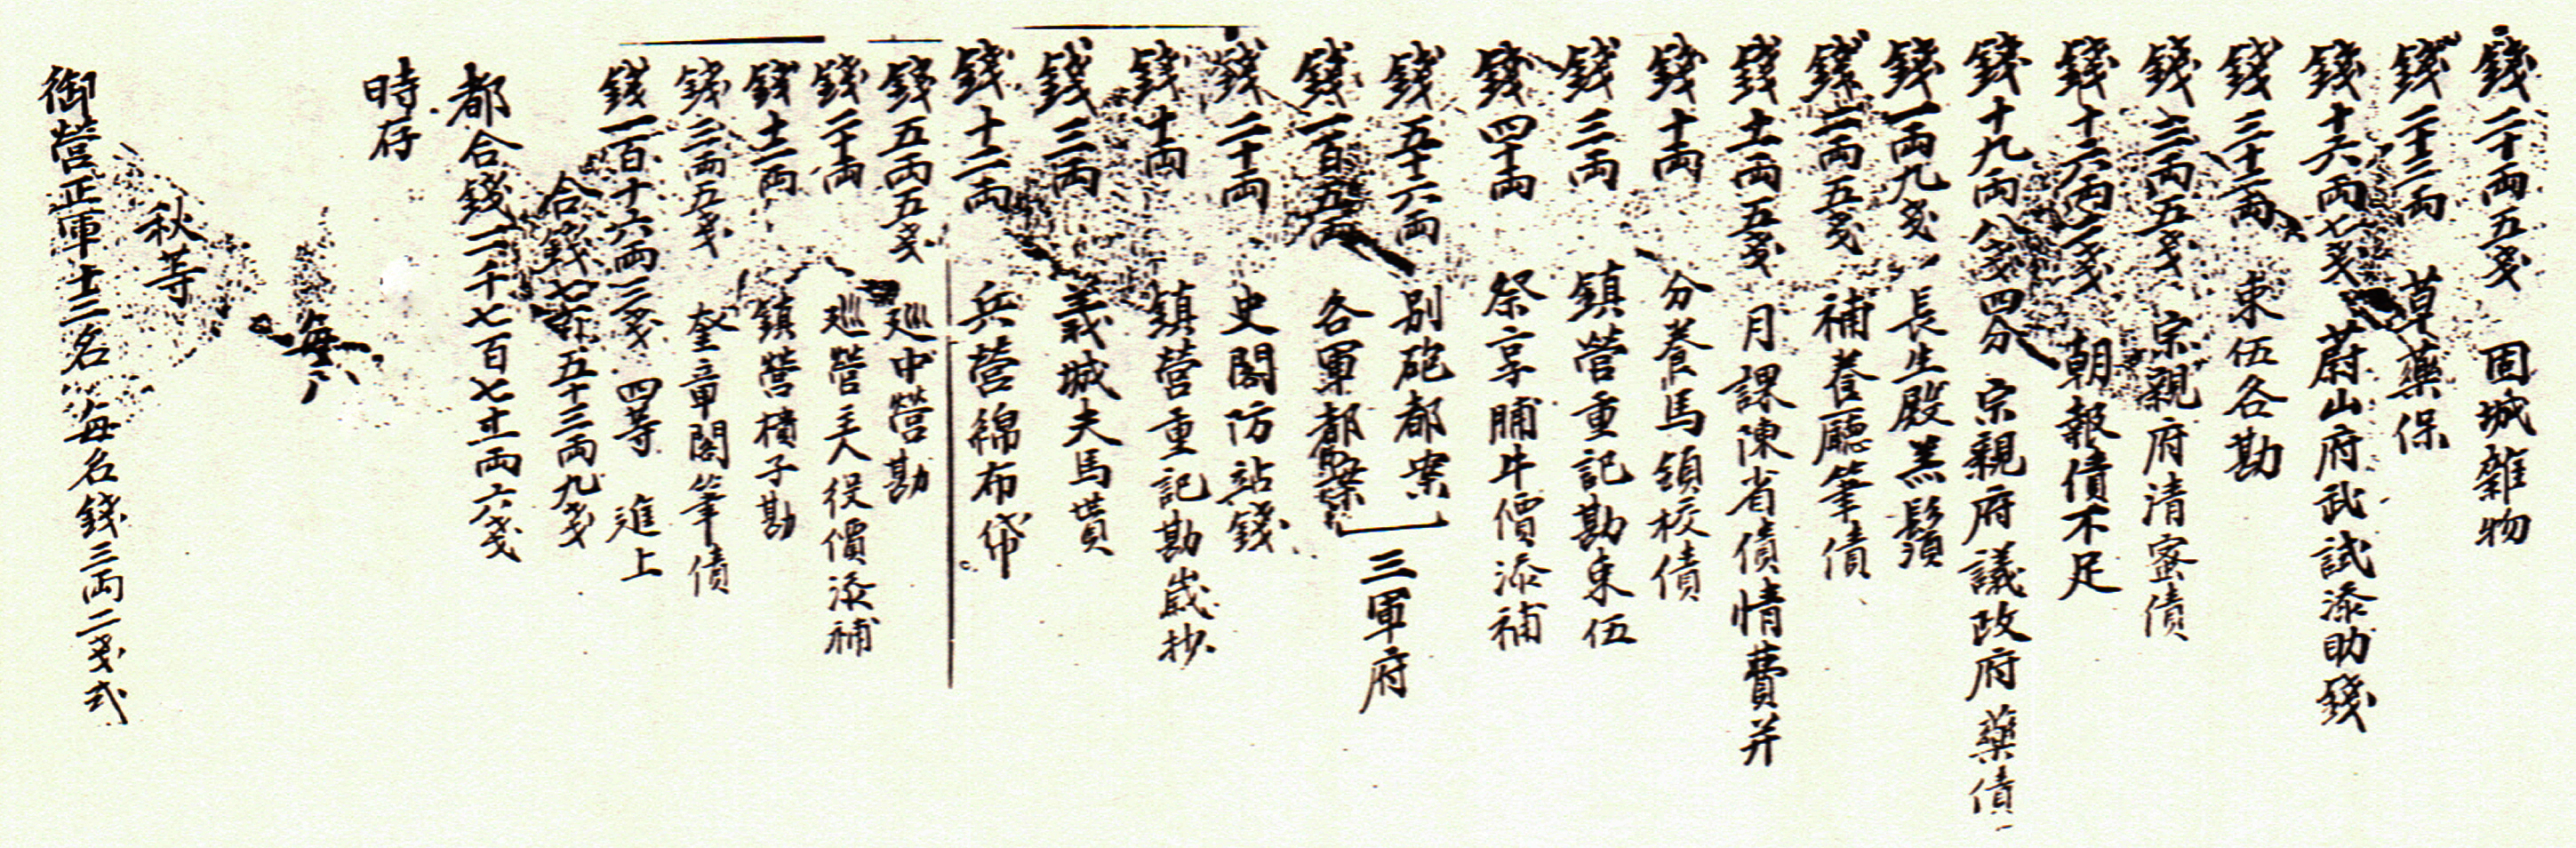 錢二十両五戔 固城雜物
錢二十二両 草藥保
錢十六両七戔 蔚山府武試添助錢
錢三十二両 束伍各勘
錢三両五戔 宗親府清蜜債
錢十六両二戔 朝報債不足
錢十九両八戔四分 宗親府議政府藥債
錢一両九戔 長生殿羔鬚
錢二両五戔 補養廳筆債
錢十一両五戔 月課陳省債情費并
錢十両 分養馬領校債
錢三両 鎮營重記勘束伍
錢四十両 祭享脯牛價添補
錢五十六両 別砲都案
錢一百五両 各軍都案
三軍府
錢二十両 史閣防站錢
錢十両 鎮營重記勘歲抄
錢三両 義城夫馬貰
錢十二両 兵營綿布帒
錢五両五戔 廵中營勘
錢二十両 廵營主人役價添補
錢十一両 鎮營横子勘
錢三両五戔 奎章閣筆債
錢一百十六両二戔 四等 進上
合錢七百五十三両九戔
都合錢二千七百七十一両六戔
時存
每六
秋等
御營正軍十三名 每名錢三両二戔式